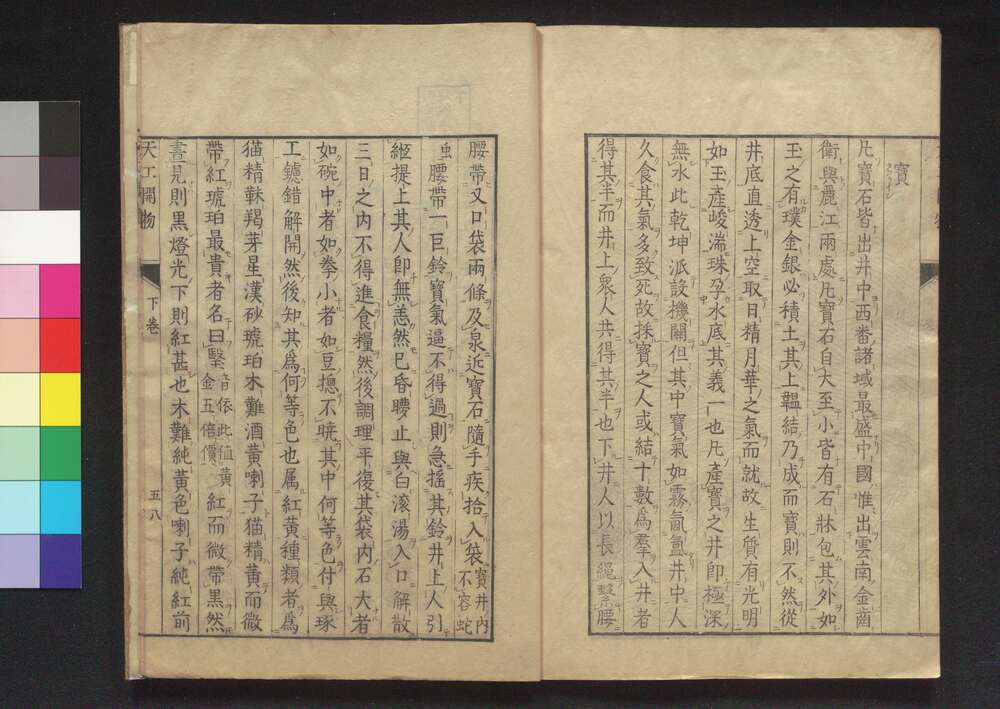 寶
凡寶石皆出井中西番諸域最盛中國惟出雲南金齒
衛與麗江兩處凡寶石自大至小皆有石牀包其外如
玉之有璞金銀必積土其上韞結乃成而寶則不然從
井底直透上空取日精月華之氣而就故生質有光明
如玉產峻湍珠孕水底其義一也凡產寶之井即極深
無水此乾坤派設機關但其中寶氣如霧氤氳井中人
久食其氣多致死故採寶之人或結十數為羣入井者
得其半而井上衆人共得其半也下井人以長繩繫腰
腰帶叉口袋兩條及泉近寶石隨手疾拾入袋寶井內不容蛇
虫腰帶一巨鈴寶氣逼不得過則急搖其鈴井上人引
縆提上其人即無恙然已昏矇止與白滾湯入口解散
三日之內不得進食糧然後調理平復其袋內石大者
如碗中者如拳小者如豆摠不曉其中何等色付與琢
工鑢錯解開然後知其為何等色也属紅黃種類者為
猫精靺羯芽星漢砂琥珀木難酒黃喇子猫精黃而微
帶紅琥珀最貴者名曰瑿音依此値黃金五倍價紅而微帶黑然
晝見則黑燈光下則紅甚也木難純黃色喇子純紅前
天工開物 下卷 五八